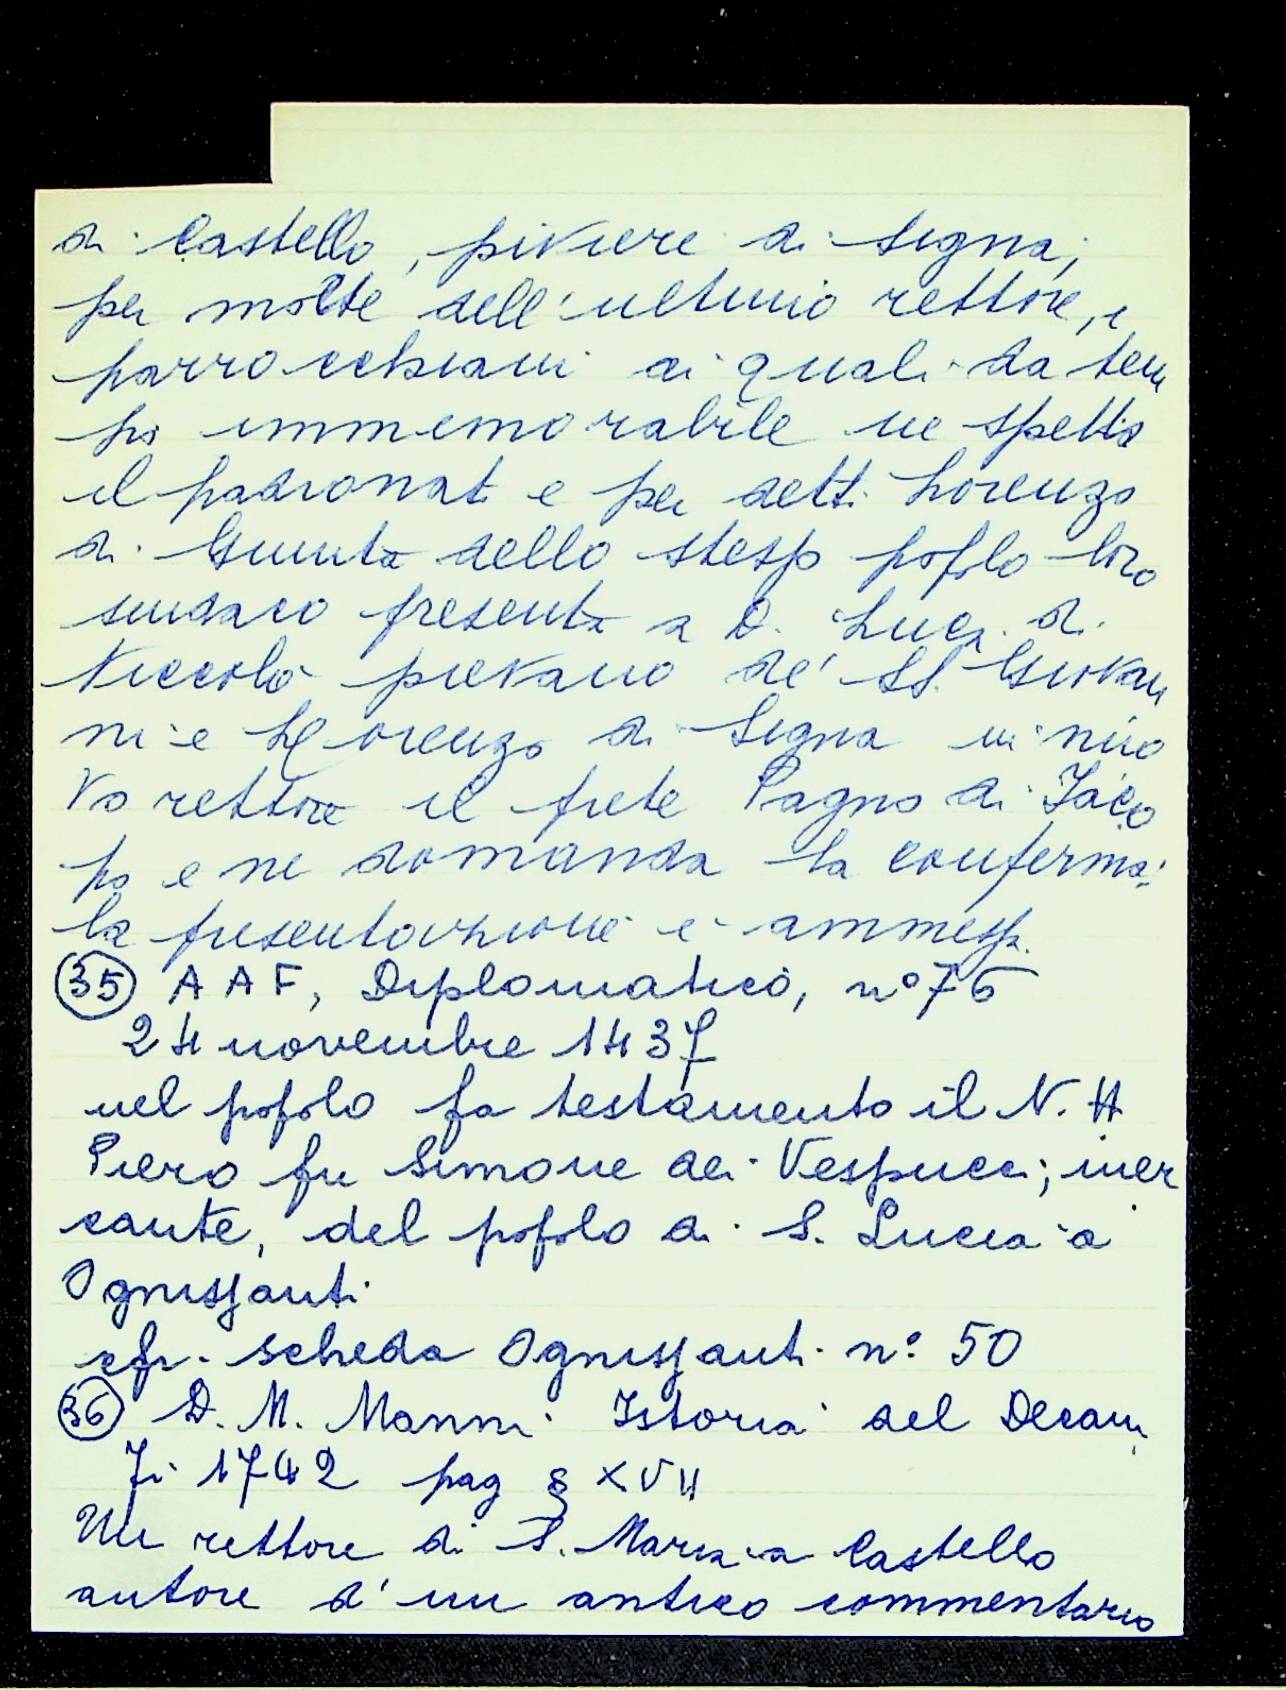 di Castello, piviere di Signa,
per morte dell'ultimo rettore, i
parrocchiani ai quali da tem
po immemorabile ne spetta
il padronato e per detti Lorenzo
di Giunta dello stesso popolo loro
sindaco presenta a D. Luca di
Niccolò pievano de' SS. Giovan
ni e Lorenzo di Signa in nuo
vo rettore il prete Pagno di Jaco
po e ne domanda la conferma;
la presentazione è ammessa.
(35) A A F, Diplomatico, n° 76
24 novembre 1437
nel popolo fa testamento il N. H
Piero fu Simone dei Vespucci; mer
cante, del popolo di S. Lucia a
Ognissanti
cfr. scheda Ognissanti n° 50
(36) D. M. Manni Istoria del Decam
Fi 1742 pag § XVII
Un rettore di S. Maria a Castello
autore d'un antico commentario